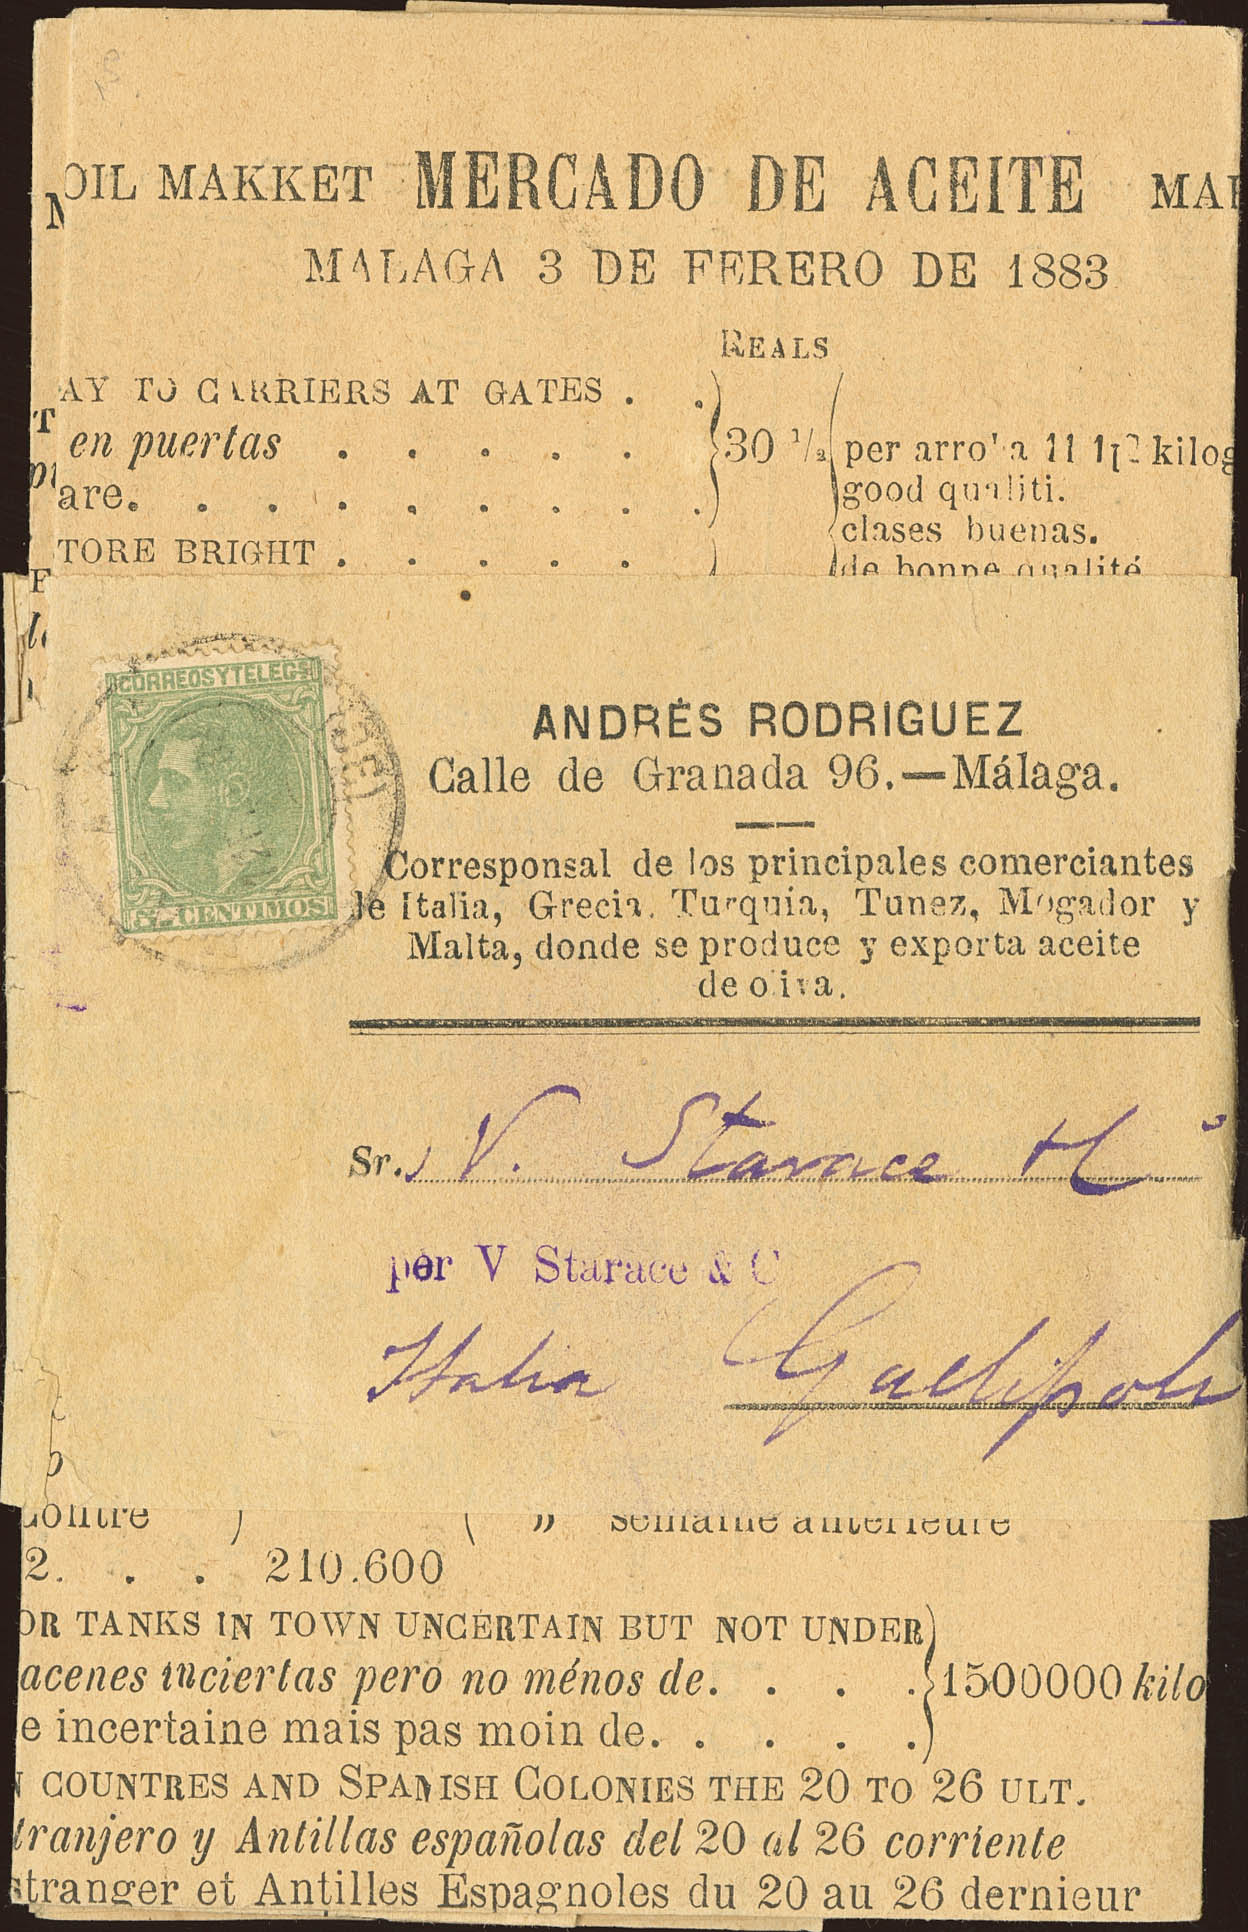 OIL MAKKET MERCADO DE ACEITE MAR
MALAGA 3 DE FERERO DE 1883
REALS
AY TO CARRIERS AT GATES . .
en puertas . . . . .
30 1/2
per arro'a 11 1[2 kilog
are. . . . . . . . .
good qualiti.
clases buenas.
TORE BRIGHT . . . . .
de bonne qualité
CORREOS Y TELEGS
CENTIMOS
ANDRÉS RODRIGUEZ
Calle de Granada 96.—Málaga.
Corresponsal de los principales comerciantes
de Italia, Grecia, Turquia, Tunez, Mogador y
Malta, donde se produce y exporta aceite
de oliva.
Sr. V. Starace
per V Starace & C
Italia Gallipoli
contre ) ( „ semaine anterieure
2. . . 210.600
OR TANKS IN TOWN UNCERTAIN BUT NOT UNDER
acenes inciertas pero no ménos de. . . .
1500000 kilo
e incertaine mais pas moin de. . . . .
N COUNTRES AND SPANISH COLONIES THE 20 TO 26 ULT.
tranjero y Antillas españolas del 20 al 26 corriente
stranger et Antilles Espagnoles du 20 au 26 dernieur